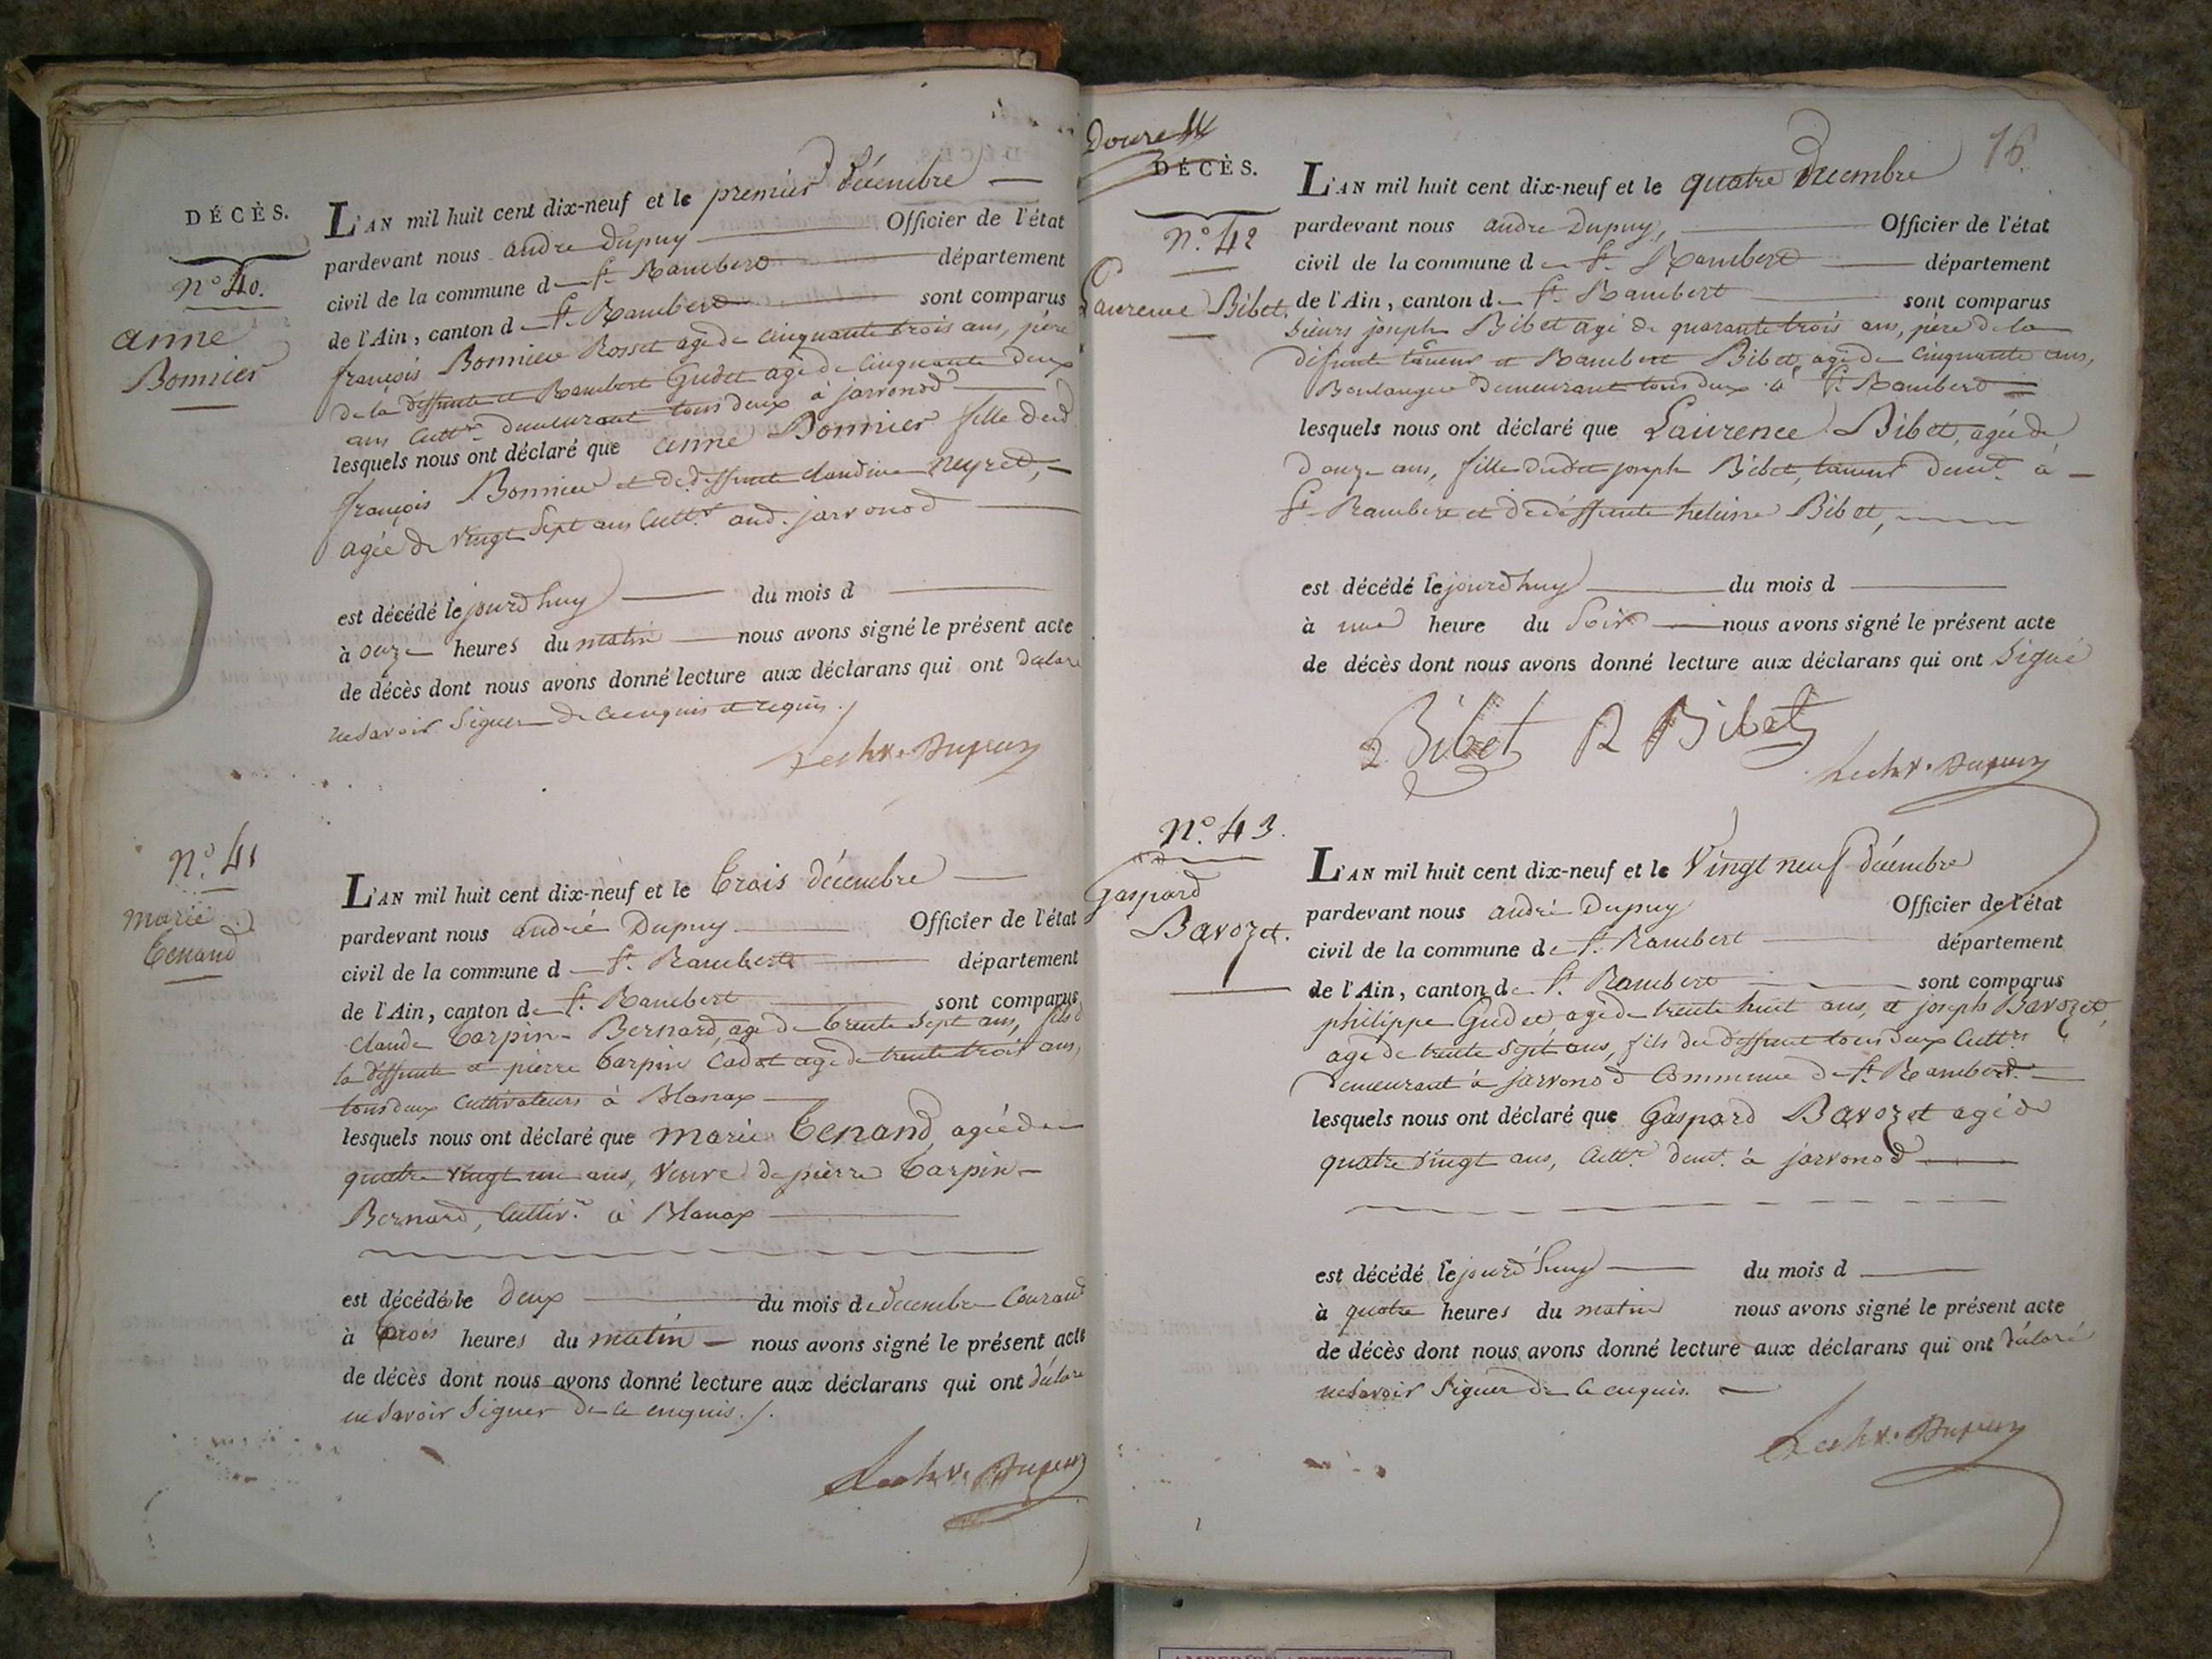 DÉCÈS.
N.° 40.
anne
Bonnier
L'AN mil huit cent dix-neuf et le premier décembre
pardevant nous andre Dupuy Officier de l'état
civil de la commune de St. Rambert département
de l'Ain, canton de St. Rambert sont comparus
françois Bonnier Rosset agé de cinquante trois ans, père
de la deffunte et Rambert Gudet agé de cinquante deux
ans Cultr. demeurant tous deux à jarvonod
lesquels nous ont déclaré que anne Bonnier fille dud.
françois Bonnier et de deffunte claudine Neyret,
agée de vingt sept ans Cultr. aud. jarvonod
est décédé le jourd'huy du mois d
à onze heures du matin nous avons signé le présent acte
de décès dont nous avons donné lecture aux déclarans qui ont déclaré
ne savoir signer de ce enquis et requis ./
Dupuy
N.° 41
marie
Tenand
L'AN mil huit cent dix-neuf et le trois décembre
pardevant nous andré Dupuy Officier de l'état
civil de la commune d St. Rambert département
de l'Ain, canton de St. Rambert sont comparus
Claude Tarpin Bernard, agé de trente sept ans, fils d
la deffunte et pierre Tarpin Cadet agé de trente trois ans,
tous deux Cultivateurs à Blanax
lesquels nous ont déclaré que marie Tenand, agée de
quatre vingt un ans, veuve de pierre Tarpin
Bernard, Cultiv.e à Blanax
est décédé le deux du mois de decembre Courant
à trois heures du matin nous avons signé le présent acte
de décès dont nous avons donné lecture aux déclarans qui ont déclaré
ne savoir signer de ce enquis ./.
Dupuy
DÉCÈS.
16.
N.° 42
Laurence Bibet.
L'AN mil huit cent dix-neuf et le quatre Decembre
pardevant nous andre Dupuy, Officier de l'état
civil de la commune de St. Rambert département
de l'Ain, canton de St. Rambert sont comparus
Sieurs joseph Bibet agé de quarante trois ans, père de la
défunte taneur et Rambert Bibet, agé de cinquante ans,
Boulanger demeurant tous deux à St. Rambert
lesquels nous ont déclaré que Laurence Bibet, agée de
douze ans, fille dudit joseph Bibet, taneur demt. à
St. Rambert et de deffunte heleine Bibet,
est décédé le jourd'huy du mois d
à une heure du Soir nous avons signé le présent acte
de décès dont nous avons donné lecture aux déclarans qui ont signé
Bibet R Bibet
Dupuy
N.° 43.
gaspard
Bavozet.
L'AN mil huit cent dix-neuf et le Vingt neuf décembre
pardevant nous andré Dupuy Officier de l'état
civil de la commune de St. Rambert département
de l'Ain, canton de St. Rambert sont comparus
philippe Gudet, agé de trente huit ans, et joseph Bavozet,
agé de trente sept ans, fils du deffunt tous deux Cultrs.
demeurant à jarvonod Commune de St. Rambert.
lesquels nous ont déclaré que Gaspard Bavozet agé de
quatre vingt ans, Cultr. demt. à jarvonod
est décédé le jourd'huy du mois d
à quatre heures du matin nous avons signé le présent acte
de décès dont nous avons donné lecture aux déclarans qui ont déclaré
ne savoir signer de ce enquis.
Dupuy